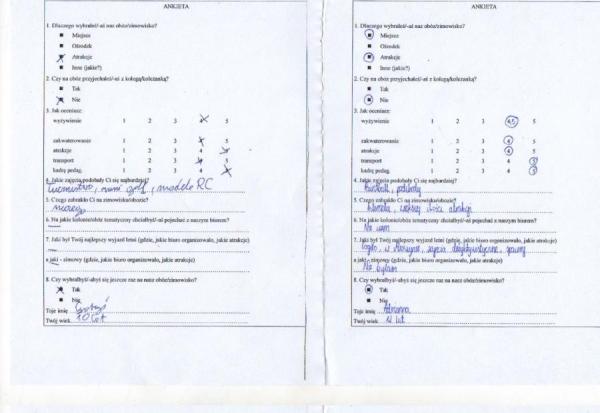 ANKIETA
1. Dlaczego wybrałeś/-aś nas obóz/zimowisko?
Miejsce
Ośrodek
Atrakcje
Inne (jakie?)
2. Czy na obóz przyjechałeś/-aś z kolegą/koleżanką?
Tak
Nie
3. Jak oceniasz:
wyżywienie 1 2 3 4 5
zakwaterowanie 1 2 3 4 5
atrakcje 1 2 3 4 5
transport 1 2 3 4 5
kadrę pedag. 1 2 3 4 5
4. Jakie zajęcia podobały Ci się najbardziej?
Łucznictwo, mini golf, modele RC
5. Czego zabrakło Ci na zimowisku/obozie?
niczego
6. Na jakie kolonie/obóz tematyczny chciałbyś/-aś pojechać z naszym biurem?
—
7. Jaki był Twój najlepszy wyjazd letni (gdzie, jakie biuro organizowało, jakie atrakcje)
—
a jaki - zimowy (gdzie, jakie biuro organizowało, jakie atrakcje)
8. Czy wybrałbyś/-abyś się jeszcze raz na nasz obóz/zimowisko?
Tak
Nie
Twoje imię
Twój wiek 10 lat
ANKIETA
1. Dlaczego wybrałeś/-aś nas obóz/zimowisko?
Miejsce
Ośrodek
Atrakcje
Inne (jakie?)
2. Czy na obóz przyjechałeś/-aś z kolegą/koleżanką?
Tak
Nie
3. Jak oceniasz:
wyżywienie 1 2 3 4,5 5
zakwaterowanie 1 2 3 4 5
atrakcje 1 2 3 4 5
transport 1 2 3 4 5
kadrę pedag. 1 2 3 4 5
4. Jakie zajęcia podobały Ci się najbardziej?
Paintball, podchody
5. Czego zabrakło Ci na zimowisku/obozie?
większej ilości atrakcji
6. Na jakie kolonie/obóz tematyczny chciałbyś/-aś pojechać z naszym biurem?
Nie wiem
7. Jaki był Twój najlepszy wyjazd letni (gdzie, jakie biuro organizowało, jakie atrakcje)
w
a jaki - zimowy (gdzie, jakie biuro organizowało, jakie atrakcje)
Nie byłam
8. Czy wybrałbyś/-abyś się jeszcze raz na nasz obóz/zimowisko?
Tak
Nie
Twoje imię Adrianna
Twój wiek 12 lat